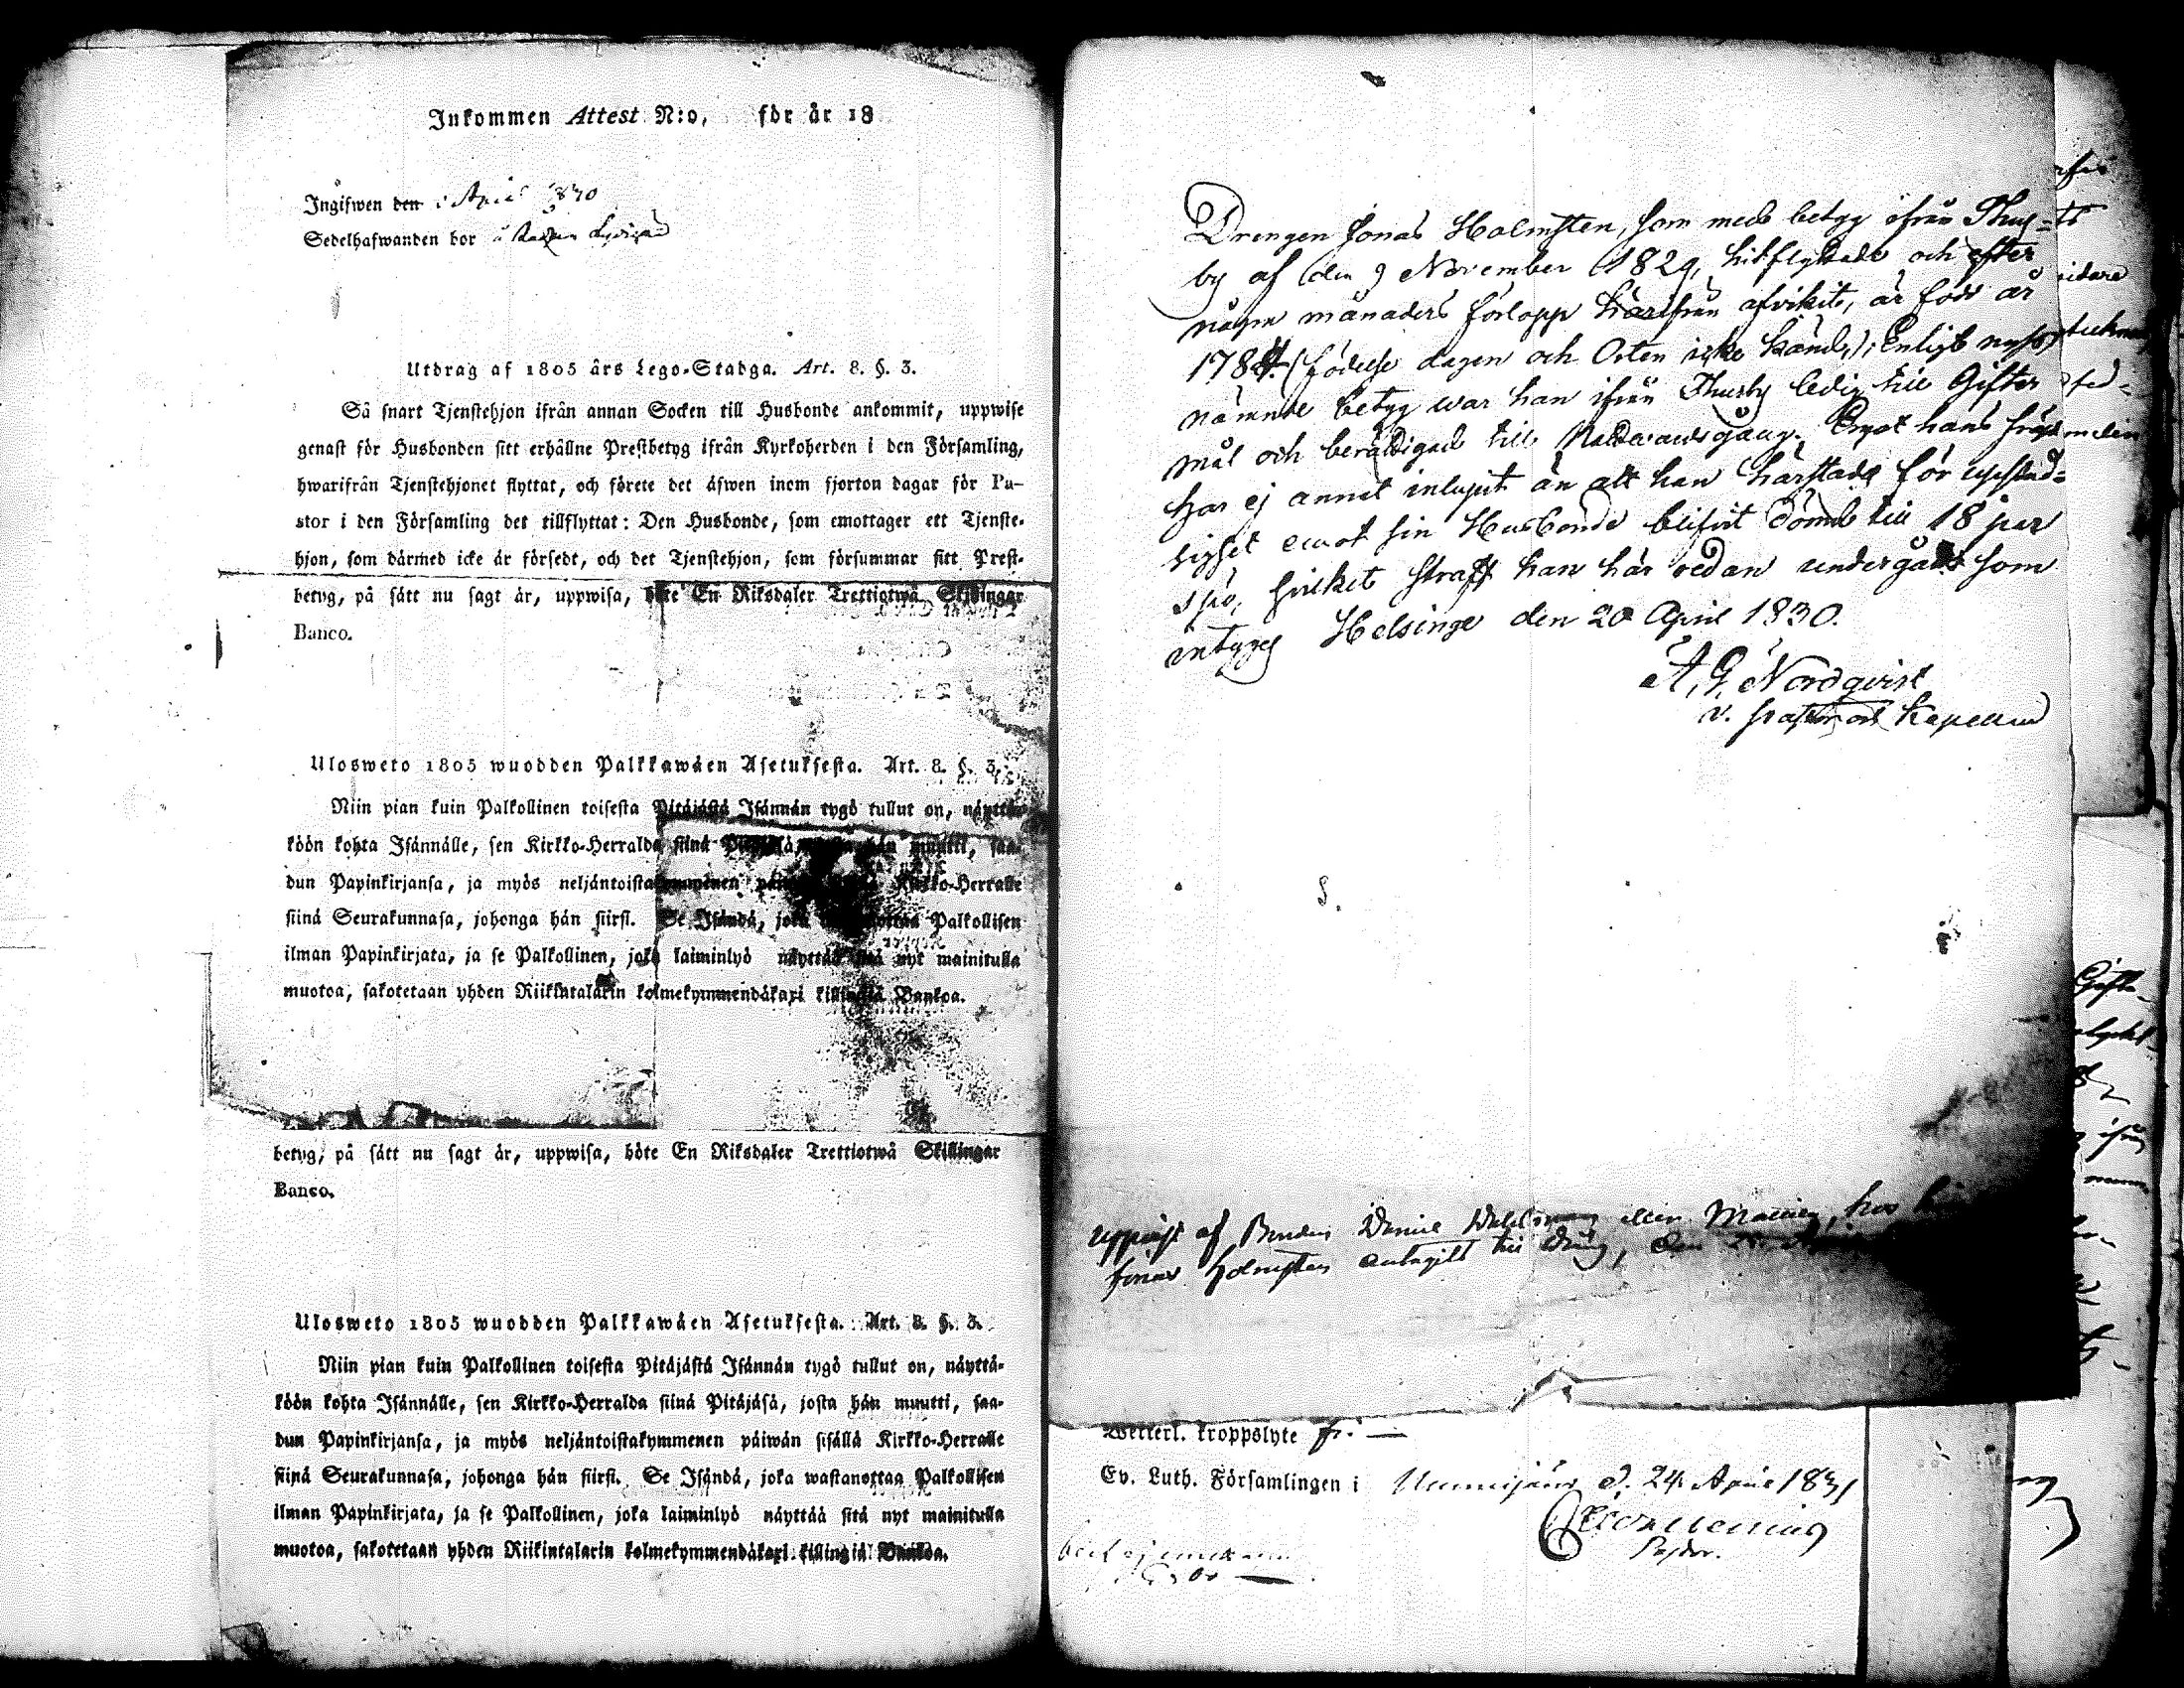 Inkommen Attest N:o, för år 18
Ingifwen den April 1830
Sedelhafwanden bor å
Utdrag af 1805 års Lego-Stadga. Art. 8. §. 3.
Så snart Tjenstehjon ifrån annan Socken till Husbonde ankommit, uppwise
genast för Husbonden sitt erhållne Prestbetyg ifrån Kyrkoherden i den Församling,
hwarifrån Tjenstehjonet flyttat, och förete det äfwen inom fjorton dagar för Pa-
stor i den Församling det tillflyttat: Den Husbonde, som emottager ett Tjenste-
hjon, som därmed icke är försedt, och det Tjenstehjon, som försummar sitt Prest-
betyg, på sätt nu sagt är, uppwisa, böte En Riksdaler Trettiotwå Skillingar
Banco.
Ulosweto 1805 wuodden Palkkawäen Asetuksesta. Art. 8. §. 3.
Niin pian kuin Palkollinen toisesta Pitäjästä Isännän tygö tullut on, näyttä-
köön kohta Isännälle, sen Kirkko-Herralda siinä hän muutti, saa-
dun Papinkirjansa, ja myös neljäntoistakymmenen Kirkko-Herralle
siinä Seurakunnasa, johonga hän siirsi. Se Isändä, joka Palkollisen
ilman Papinkirjata, ja se Palkollinen, joka laiminlyö näyttää sitä nyt mainitulla
muotoa, sakotetaan yhden Riikintalarin kolmekymmendäkaxi killingiä Bankoa.
betyg, på sätt nu sagt är, uppwisa, böte En Riksdaler Trettiotwå Skillingar
Banco.
Ulosweto 1805 wuodden Palkkawäen Asetuksesta. Art. 8. §. 3.
Niin pian kuin Palkollinen toisesta Pitäjästä Isännän tygö tullut on, näyttä-
köön kohta Isännälle, sen Kirkko-Herralda siinä Pitäjäsä, josta hän muutti, saa-
dun Papinkirjansa, ja myös neljäntoistakymmenen päiwän sisällä Kirkko-Herralle
siinä Seurakunnasa, johonga hän siirsi. Se Isändä, joka wastanottaa Palkollisen
ilman Papinkirjata, ja se Palkollinen, joka laiminlyö näyttää sitä nyt mainitulla
muotoa, sakotetaan yhden Riikintalarin kolmekymmendäkaxi killingiä Bankoa.
Drengen Jonas Holmsten, som med betyg ifrån Thus-
by af den 9 November 1829, hitflyttade och efter
några månaders förlopp härifrån afvikit, är född år
178 (födelse dagen och Orten icke kända); Enligt nyss-
nämnde betyg war han ifrån Thusby ledig till Gifter
mål och berättigad till Nattvardsgång. Emot hans frägd
har ej annat inlupit än att han härstädes för uppstud-
sighet emot sin Husbonde blifvit dömd till 18 par
spö, hvilket straff han här redan undergått som
intygas Helsinge den 20 April 1830.
A. G. Nordqvist
v. pastor och Kapellan
uppvist af Bonden Daniel eller Mattila, hos
Jonas Holmsten antagits till dräng, den
Wetterl. kroppslyte fri. —
Ev. Luth. Församlingen i Nummijärvi d. 24 April 1831
Pastor.